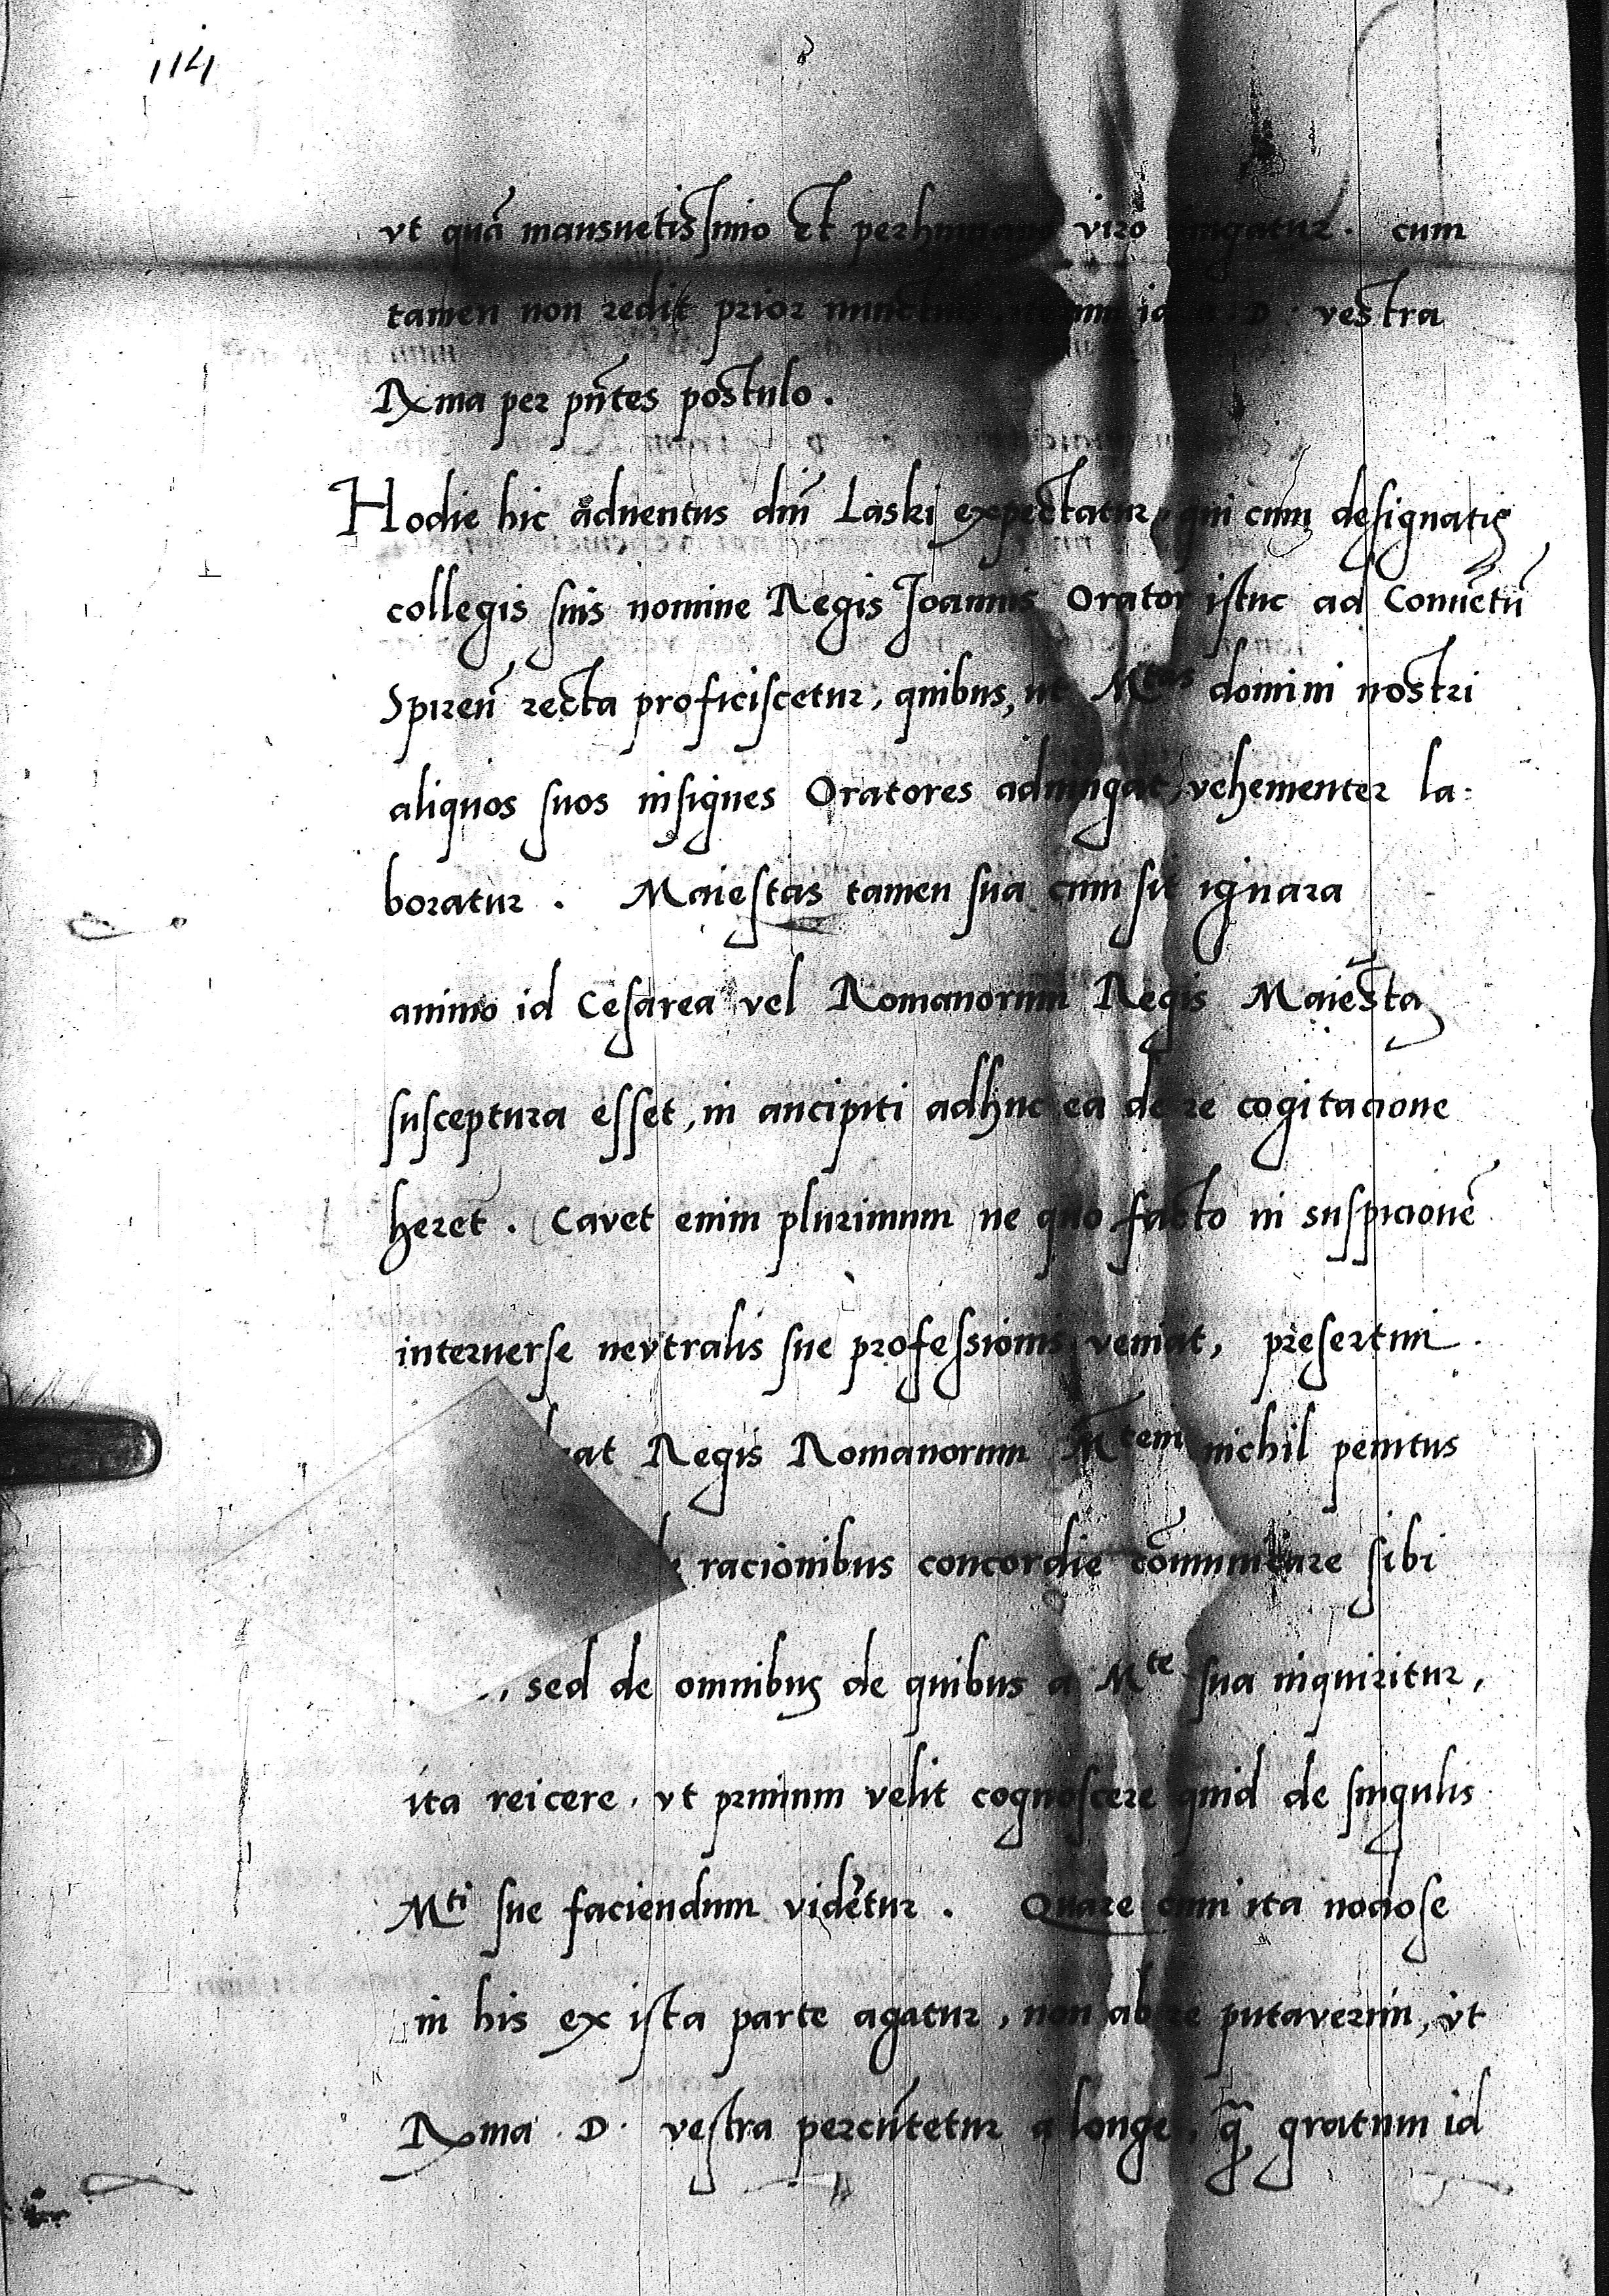 114
vt quā mansuetissimo et perhumano viro iungatur. cum
tamen non redit prior nunctius, iterum id a. D. vestra
Rxma per pn̄tes postulo.
Hodie hic aduentus dnī Laski expectatur, qui cum designatis
collegis suis nomine Regis Joannis Orator istuc ad Conuētū
Spiren̄ recta proficiscetur, quibus, ut Mtas domini nostri
aliquos suos insignes Oratores adiungat, vehementer la:
boratur. Maiestas tamen sua cum sit ignara
animo id Cesarea vel Romanorum Regis Maiesta
susceptura esset, in ancipiti adhuc ea de re cogitacione
heret. Cavet enim plurimum ne quo facto in suspicionē
interuerse nevtralis sue professionis veniat, presertim
eat Regis Romanorum Mtem nichil penitus
racionibus concordie cōmunicare sibi
, sed de omnibus de quibus a Mte sua inquiritur,
ita reicere, vt primum velit cognoscere quid de singulis
Mti sue faciendum videtur. Quare cum ita nodose
in his ex ista parte agatur, non ab re putaverim, vt
Rxma. D. vestra percūtetur a longe, q̄ gratum id